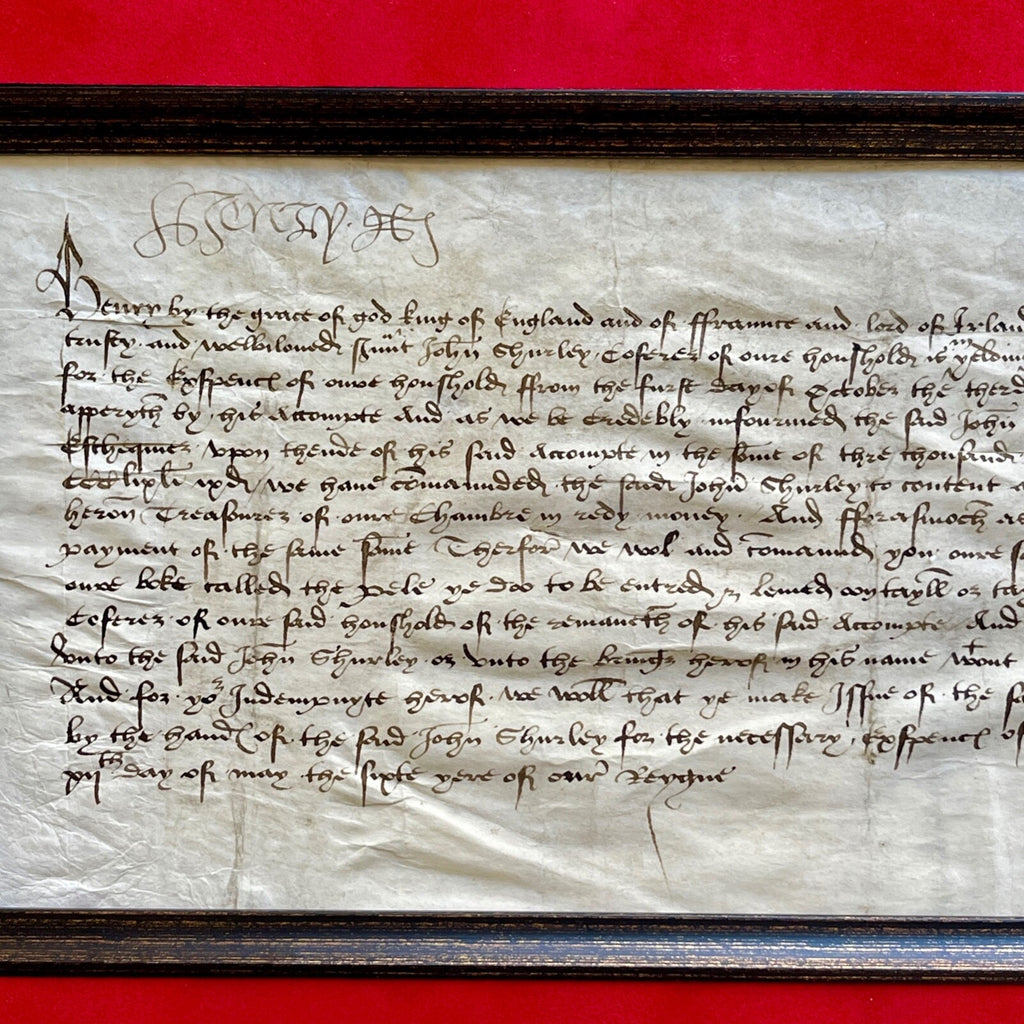 Henry R
Henry by the grace of god king of England and of ffraunce and lord of Irlan
trusty and welbiloued Sʳuᵃᵘt John Shurley Coferer of oure houshold is yeldin
for the Expenc of oure houshold ffrom the furst day of October the therd
apperyth by his Accompte And as we be credebly infourmed the said John
Eschequier vpon thende of his said Accompte in the sme of thre thousand
CCClixli ixd we haue comaunded the said John Shurley to content
heron Treasourer of oure Chambre in redy money And fforasmoch as
payment of the same sme Therfor we wol and comaund you oure
oure boke called the pele ye doo to be entred leuied by tayll or ta
Coferer of oure said houshold of the remaneth of his said Accompte And
Vnto the said John Shurley or Vnto the bringer herof in his name wᵗout
And for yoʳ Indempnyte herof we woll that ye make Issue of the sa
by the hand of the said John Shurley for the necessary Expenc of
xijth day of may the sixte yere of our Reygne